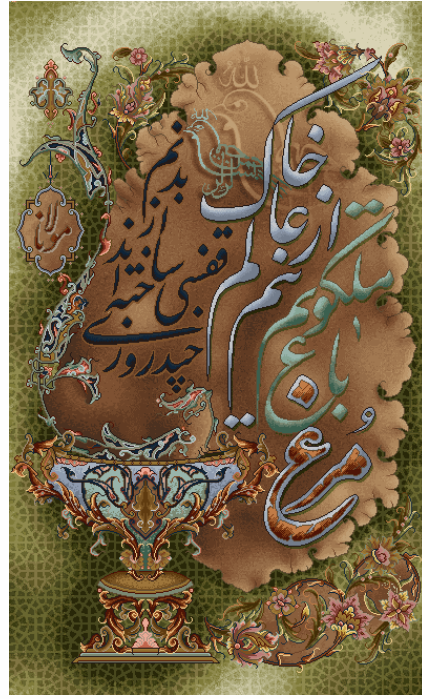 الله
مرغ باغ ملکوتم نیم از عالم خاک
چند روزی قفسی ساخته اند از بدنم
مولانا